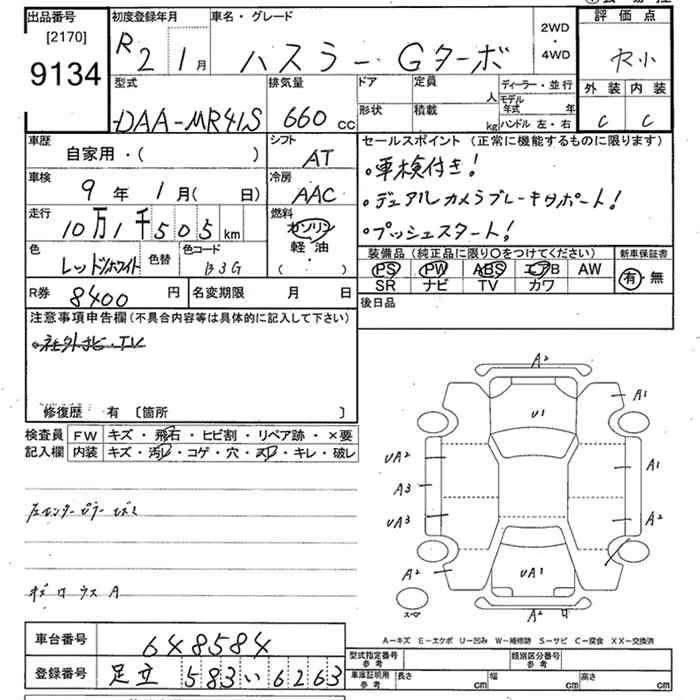 出品番号
[2170]
9134
初度登録年月
R2 1月
車名・グレード
ハスラー Gターボ
2WD
・
4WD
評価点
型式
DAA-MR41S
排気量
660 cc
ドア
形状
定員 人
積載 kg
ディーラー・並行
モデル年式 年
ハンドル 左・右
外装 内装
C C
車歴
自家用・( )
シフト
AT
車検
9年 1月( 日)
冷房
AAC
走行
10万1千505km
燃料
ガソリン
軽・油
( ・ )
色
レッド/ホワイト
色替
色コード
B3G
R券 8400 円
名変期限 月 日
セールスポイント(正常に機能するものに限ります)
・車検付き!
・デュアルカメラブレーキサポート!
・プッシュスタート!
装備品(純正品に限り○をつけてください)
PS PW ABS エアB AW
SR ナビ TV カワ
新車保証書
有・無
後日品
注意事項申告欄(不具合内容等は具体的に記入して下さい)
・社外ナビ・TV
修復歴 有 [箇所 ]
検査員記入欄
FW キズ・飛石・ヒビ割・リペア跡・×要
内装 キズ・汚レ・コゲ・穴・スレ・キレ・破レ
左センターピラー
A2
U1
A1
UA2
A1
A3
UA3
A2
A2
UA1
A2
A-キズ E-エクボ U-凹み W-補修跡 S-サビ C-腐食 XX-交換済
車台番号 648584
登録番号 足立 583 い 6263
型式指定番号 参考
類別区分番号 参考
車庫証明用 参考
長さ cm 幅 cm 高さ cm